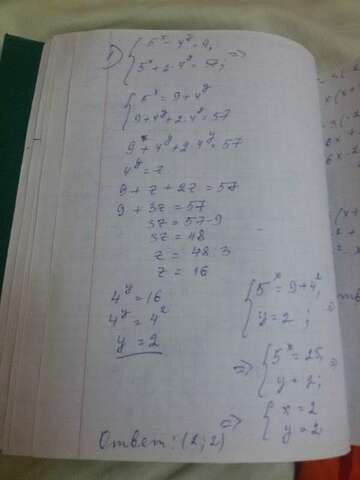 1) { 5ˣ - 4ʸ = 9, =>
5ˣ + 2·4ʸ = 57;
{ 5ˣ = 9 + 4ʸ
9 + 4ʸ + 2·4ʸ = 57
9 + 4ʸ + 2·4ʸ = 57
4ʸ = z
9 + z + 2z = 57
9 + 3z = 57
3z = 57 - 9
3z = 48
z = 48 : 3
z = 16
4ʸ = 16
4ʸ = 4²
y = 2
{ 5ˣ = 9 + 4²,
y = 2 ; =>
=> { 5ˣ = 25, =>
y = 2;
=> { x = 2
y = 2
Ответ: (2; 2)